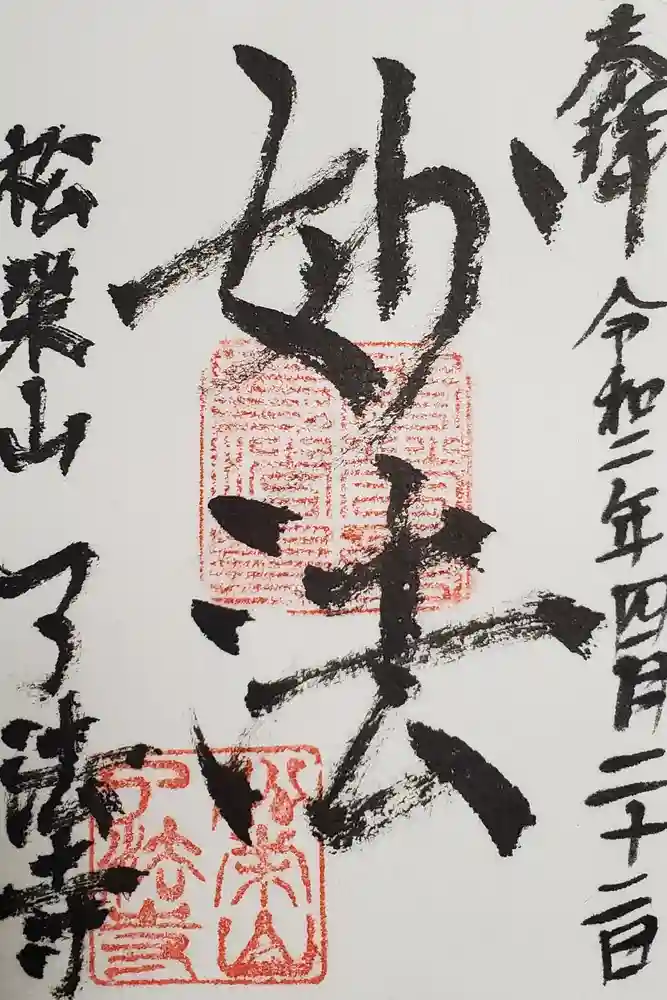 奉拝 令和二年四月二十二日
妙法
松栄山 了法寺
松栄山
了法寺